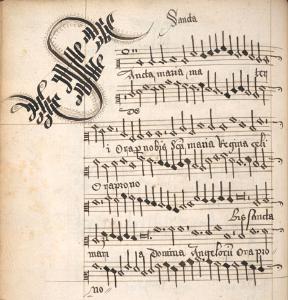 Sancta
Ancta maria ma ter
De
i Ora pro nobis Sca maria Regina celi
Ora pro no
bis Sancta
mari a Domina Angelorū Ora pro
no